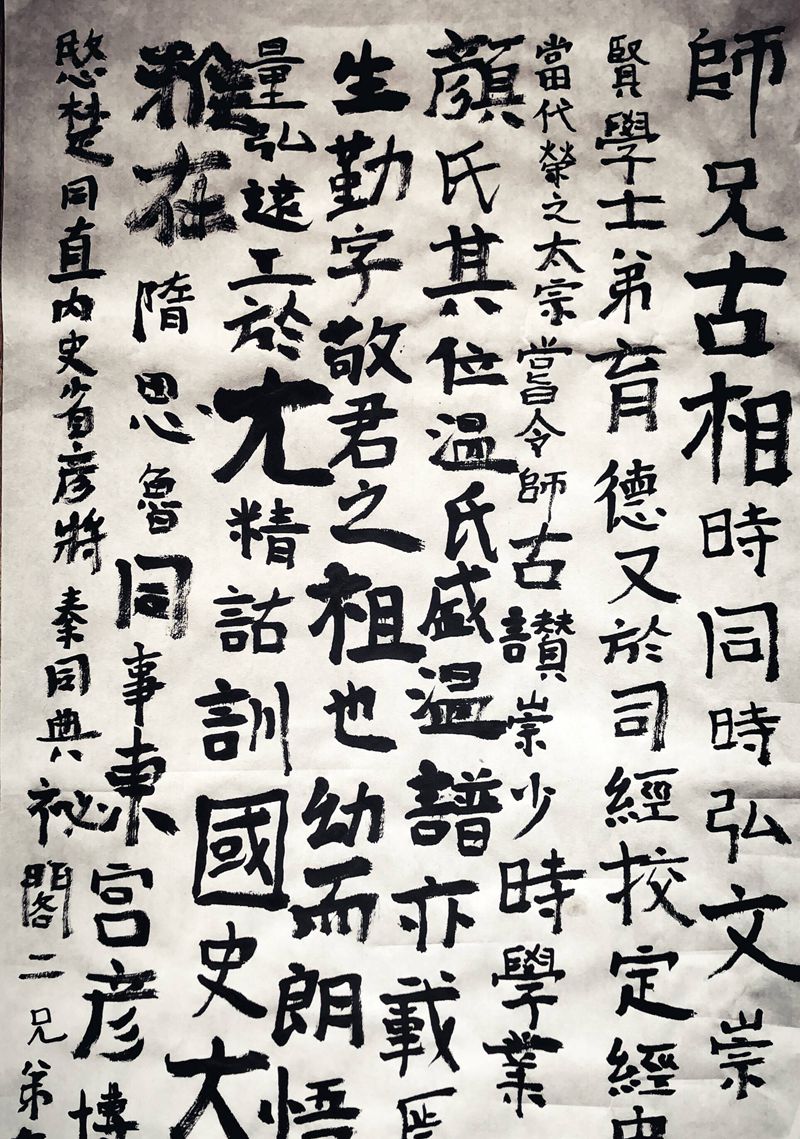 師兄古相時同時弘文崇
賢學士弟育德又於司經挍定經史
當代榮之太宗嘗令師古讃崇少時學業
顏氏其位温氏盛温譜亦載
生勤字敬君之祖也幼而朗悟
量弘遠工於尤精詁訓國史大
雅在隋思魯同事東宮彦博
愍楚同直内史省彦將秦同典祕閣二兄弟